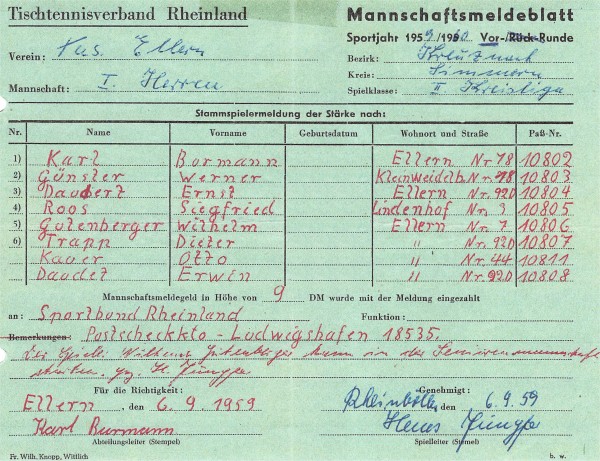 Tischtennisverband Rheinland
Mannschaftsmeldeblatt
Sportjahr 1959/1960 Vor-/Rück-Runde
Verein: Tus. Ellern
Bezirk: Kreuznach
Kreis: Simmern
Mannschaft: I. Herren
Spielklasse: II Kreisliga
Stammspielermeldung der Stärke nach:
Nr. Name Vorname Geburtsdatum Wohnort und Straße Paß-Nr.
1) Karl Bormann Ellern Nr 78 10802
2) Günster Werner Kleinweidelb. Nr 18 10803
3) Daudert Ernst Ellern Nr. 920 10804
4) Roos Siegfried Lindenhof Nr 3 10805
5) Gutenberger Wilhelm Ellern Nr. 7 10806
6) Trapp Dieter " Nr. 920 10807
Kauer Otto " Nr. 44 10811
Daudet Erwin " Nr. 920 10808
Mannschaftsmeldegeld in Höhe von 9 DM wurde mit der Meldung eingezahlt
an: Sportbund Rheinland Funktion:
Bemerkungen: Postscheckkto - Ludwigshafen 18535.
Der Spieler Wilhelm Gutenberger kann in der Seniorenmannschaft
gez. H.
Für die Richtigkeit:
Genehmigt:
Ellern, den 6.9.1959
Rheinböllen, den 6.9.59
Karl Burmann
Hans
Abteilungsleiter (Stempel)
Spielleiter (Stemel)
Fr. Wilh. Knopp, Wittlich
b. w.